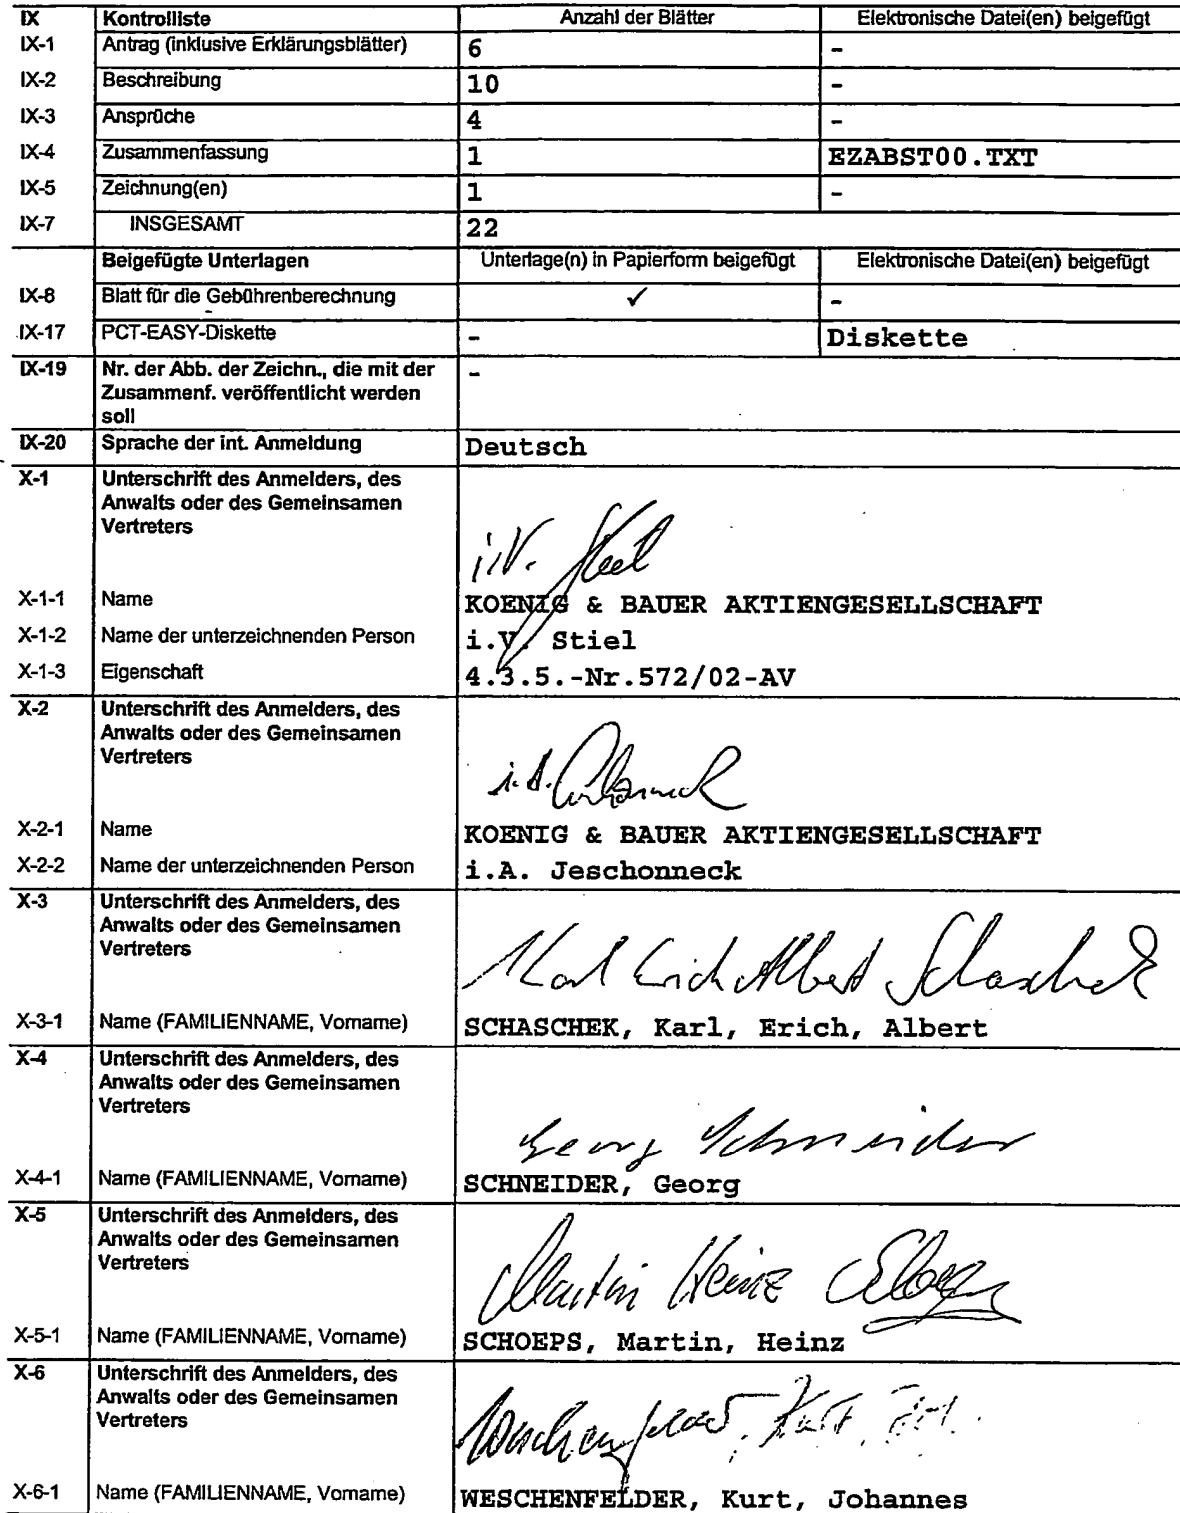 IX Kontrolliste Anzahl der Blätter Elektronische Datei(en) beigefügt
IX-1 Antrag (inklusive Erklärungsblätter) 6 -
IX-2 Beschreibung 10 -
IX-3 Ansprüche 4 -
IX-4 Zusammenfassung 1 EZABST00.TXT
IX-5 Zeichnung(en) 1 -
IX-7 INSGESAMT 22
Beigefügte Unterlagen Unterlage(n) in Papierform beigefügt Elektronische Datei(en) beigefügt
IX-8 Blatt für die Gebührenberechnung ✓ -
IX-17 PCT-EASY-Diskette - Diskette
IX-19 Nr. der Abb. der Zeichn., die mit der -
Zusammenf. veröffentlicht werden
soll
IX-20 Sprache der int. Anmeldung Deutsch
X-1 Unterschrift des Anmelders, des
Anwalts oder des Gemeinsamen
Vertreters
i.V. Stiel
X-1-1 Name KOENIG & BAUER AKTIENGESELLSCHAFT
X-1-2 Name der unterzeichnenden Person i.V. Stiel
X-1-3 Eigenschaft 4.3.5.-Nr.572/02-AV
X-2 Unterschrift des Anmelders, des
Anwalts oder des Gemeinsamen
Vertreters
i.A.
X-2-1 Name KOENIG & BAUER AKTIENGESELLSCHAFT
X-2-2 Name der unterzeichnenden Person i.A. Jeschonneck
X-3 Unterschrift des Anmelders, des
Anwalts oder des Gemeinsamen
Vertreters
Karl Erich Albert Schaschek
X-3-1 Name (FAMILIENNAME, Vorname) SCHASCHEK, Karl, Erich, Albert
X-4 Unterschrift des Anmelders, des
Anwalts oder des Gemeinsamen
Vertreters
Georg Schneider
X-4-1 Name (FAMILIENNAME, Vorname) SCHNEIDER, Georg
X-5 Unterschrift des Anmelders, des
Anwalts oder des Gemeinsamen
Vertreters
Martin Heinz Schoeps
X-5-1 Name (FAMILIENNAME, Vorname) SCHOEPS, Martin, Heinz
X-6 Unterschrift des Anmelders, des
Anwalts oder des Gemeinsamen
Vertreters
Weschenfelder, Kurt
X-6-1 Name (FAMILIENNAME, Vorname) WESCHENFELDER, Kurt, Johannes